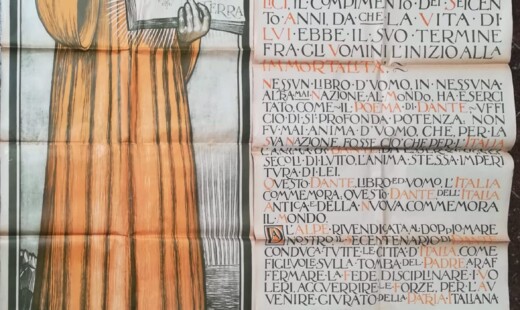 ERRA
LICI, IL COMPIMENTO DEI SEICEN
TO ANNI, DA CHE LA VITA DI
LVI EBBE IL SVO TERMINE
FRA GLI VOMINI, L'INIZIO ALLA
IMMORTALITÀ
NESSVN LIBRO D'VOMO, IN NESSVNA
ALTRA NAZIONE AL MONDO, HA ESERCI
TATO, COME IL POEMA DI DANTE, VFFI
CIO DI SÌ PROFONDA POTENZA, NON
FV MAI ANIMA D'VOMO, CHE, PER LA
SVA NAZIONE, FOSSE CIÒ CHE PER L'ITALIA
SECOLI DI LVTTO, L'ANIMA STESSA IMPERI
TVRA DI LEI
QVESTO DANTE, LIBRO ED VOMO, L'ITALIA
COMMEMORA, QVESTO DANTE DELL'ITALIA
ANTICA E DELLA NVOVA, COMMEMORA
IL MONDO
DALL'ALPE RIVENDICATA AL DOPPIO MARE
NOSTRO IL SECENTENARIO DI DANTE
CONDVCA TVTTE LE CITTÀ D'ITALIA, COME
FIGLIVOLE SVLLA TOMBA DEL PADRE A RAF
FERMARE LA FEDE, DISCIPLINARE I VO
LERI, ACCVERRIRE LE FORZE, PER L'AV
VENIRE GIVRATO DELLA PATRIA ITALIANA